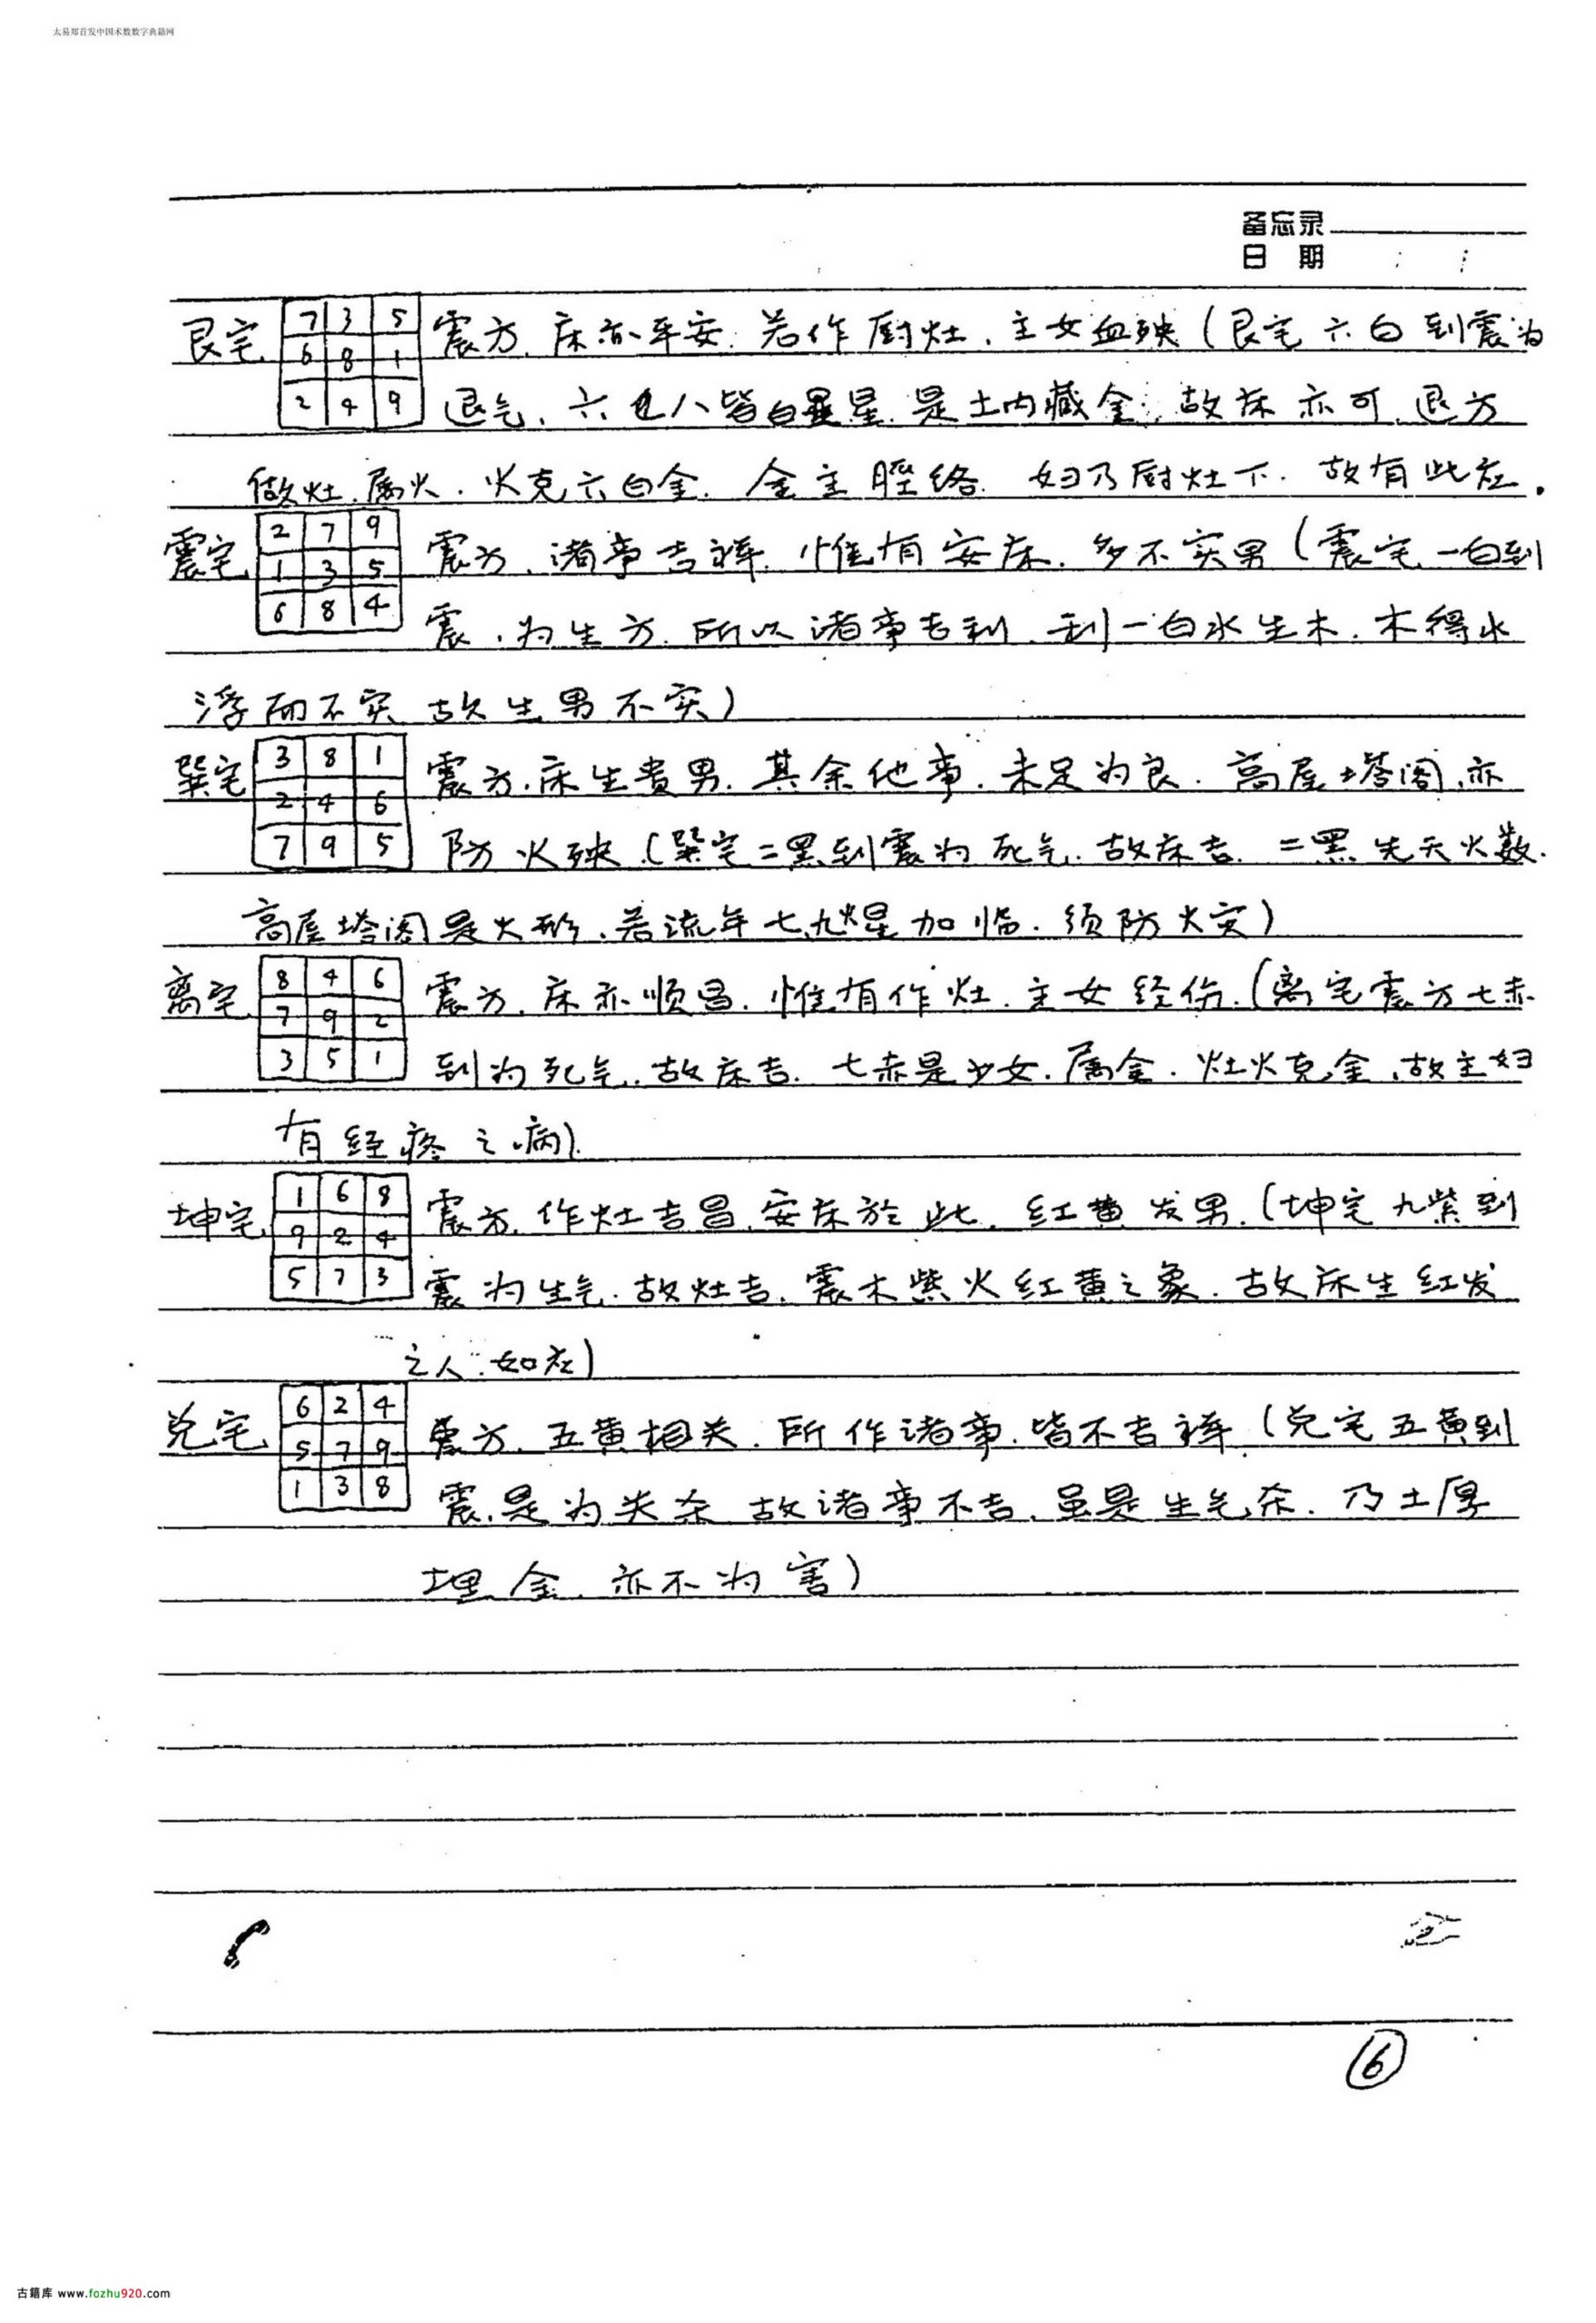 太易郑首发中国术数数字典籍网
备忘录
日 期
艮宅 7 3 5 震方.床亦平安.若作厨灶.主女血殃(艮宅六白到震为
6 8 1
2 4 9 退气.六八皆白星.是土内藏金.故床亦可.退方
做灶.属火.火克六白金.金主经络.妇乃厨灶下.故有此应.
震宅 2 7 9 震方.诸事吉祥.惟有安床.多不实男(震宅一白到
1 3 5
6 8 4 震.为生方.所以诸事吉利.到一白水生木.木得水
浮而不实 故生男不实)
巽宅 3 8 1 震方.床生贵男.其余他事.未足为良.高屋塔阁.亦
2 4 6
7 9 5 防火殃.(巽宅二黑到震为死气.故床吉.二黑先天火数.
高屋塔阁是火形.若流年七.九火星加临.须防火灾)
离宅 8 4 6 震方.床亦顺昌.惟有作灶.主女经伤.(离宅震方七赤
7 9 2
3 5 1 到为死气.故床吉.七赤是少女.属金.灶火克金.故主妇
有经疼之病)
坤宅 1 6 8 震方.作灶吉昌.安床於此.红黄发男.(坤宅九紫到
9 2 4
5 7 3 震为生气.故灶吉.震木紫火红黄之象.故床生红发
之人.如应)
兑宅 6 2 4 震方.五黄相关.所作诸事.皆不吉祥.(兑宅五黄到
5 7 9
1 3 8 震.是为关杀 故诸事不吉.虽是生气杀.乃土厚
埋金.亦不为害)
6
古籍库 www.fozhu920.com